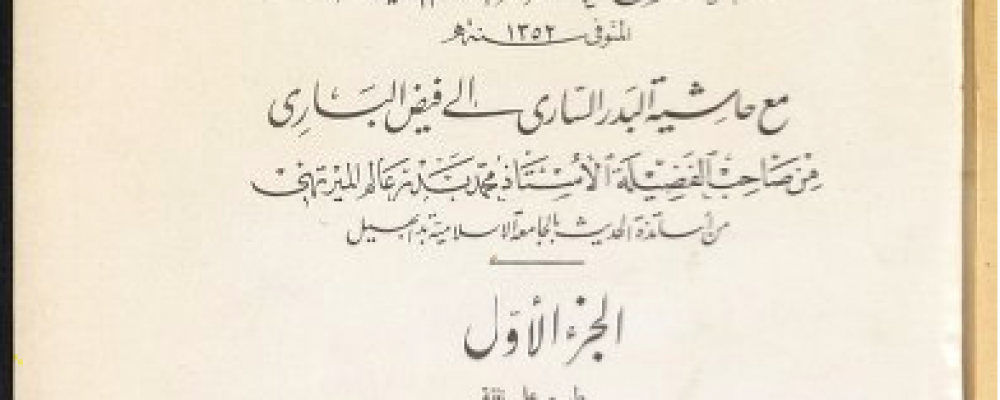 المتوفى ١٣٥٢ سنة هـ
مع حاشية البدر الساري إلى فيض الباري
من صاحب الفضيلة الأستاذ محمد بدر عالم الميرتهي
من أساتذة الحديث بالجامعة الاسلامية بدابهيل
الجزء الأول